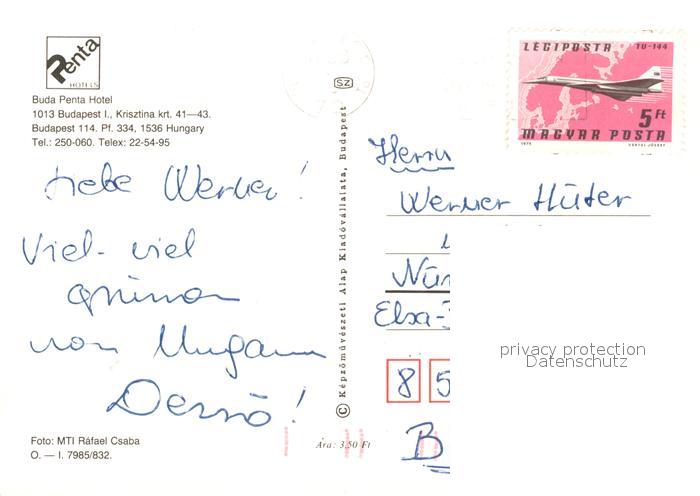 Penta
HOTELS
Buda Penta Hotel
1013 Budapest I., Krisztina krt. 41—43.
Budapest 114. Pf. 334, 1536 Hungary
Tel.: 250-060. Telex: 22-54-95
Liebe Werner!
Viel- viel
von Ungarn
Dezső!
Foto: MTI Ráfael Csaba
O. — I. 7985/832.
SZ
© Képzőművészeti Alap Kiadóvállalata, Budapest
Ára: 3,50 Ft
LÉGIPOSTA TU-144
5 Ft
MAGYAR POSTA
Herrn
Werner Hüter
Nür
Elsa-
85
B
privacy protection
Datenschutz